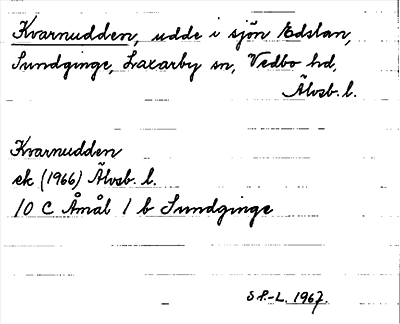 Kvarnudden, udde i sjön Edslan,
Sundginge, Laxarby sn, Vedbo hd,
Älvsb. l.
Kvarnudden
ek (1966) Älvsb. l.
10 C Åmål 1 b Sundginge
S P.-L. 1967.